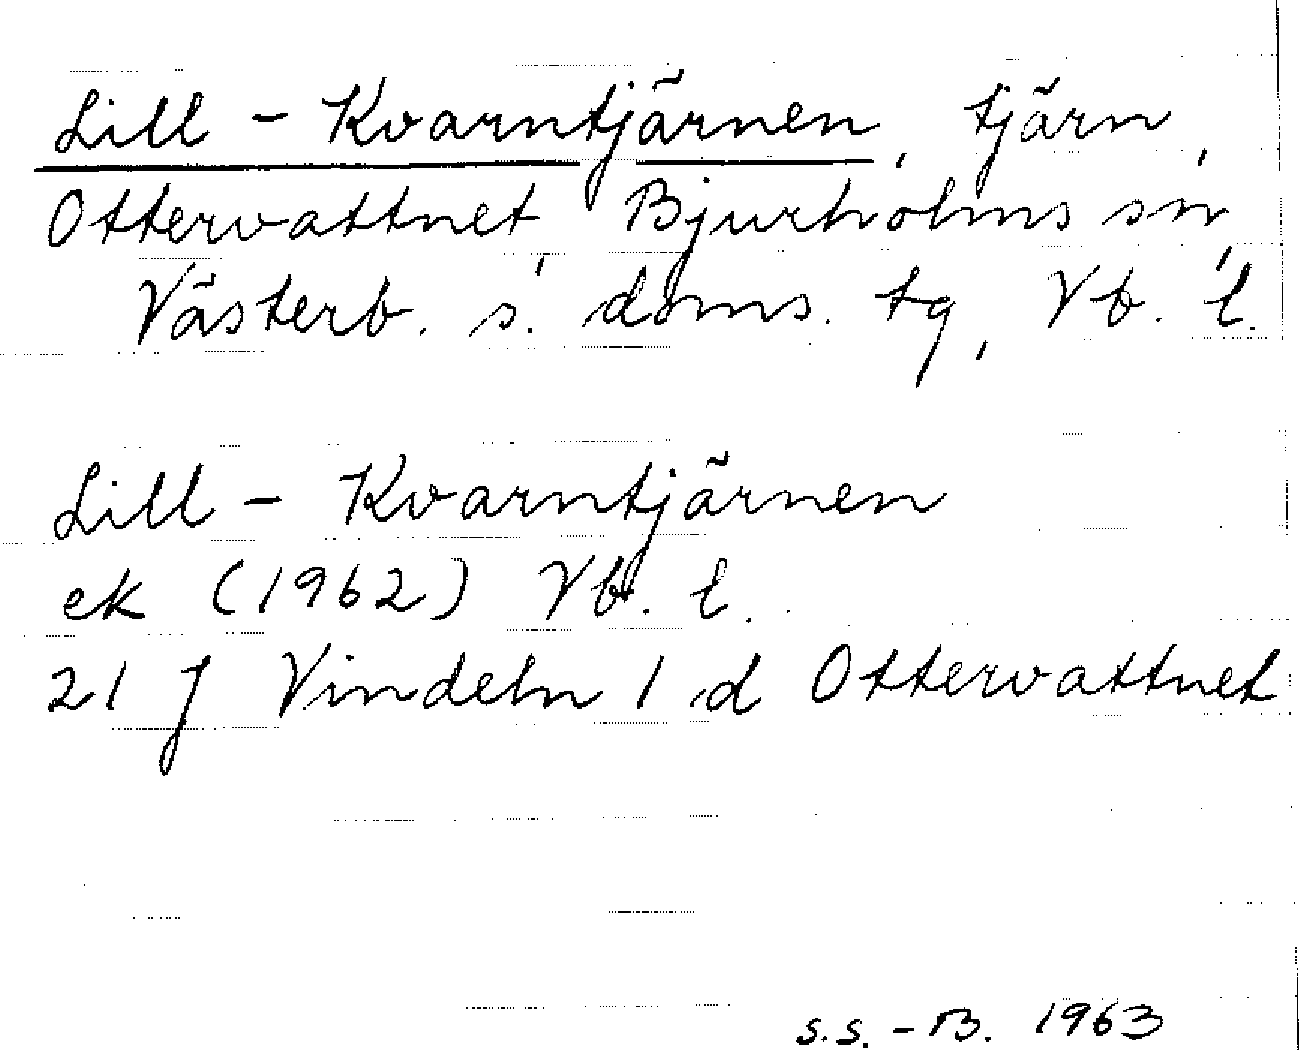 Lill - Kvarntjärnen, tjärn,
Ottervattnet, Bjurholms sn,
Västerb. s. doms. tg, Vb. l.
Lill - Kvarntjärnen
ek (1962) Vb. l.
21 J Vindeln 1 d Ottervattnet
S.S. - B. 1963